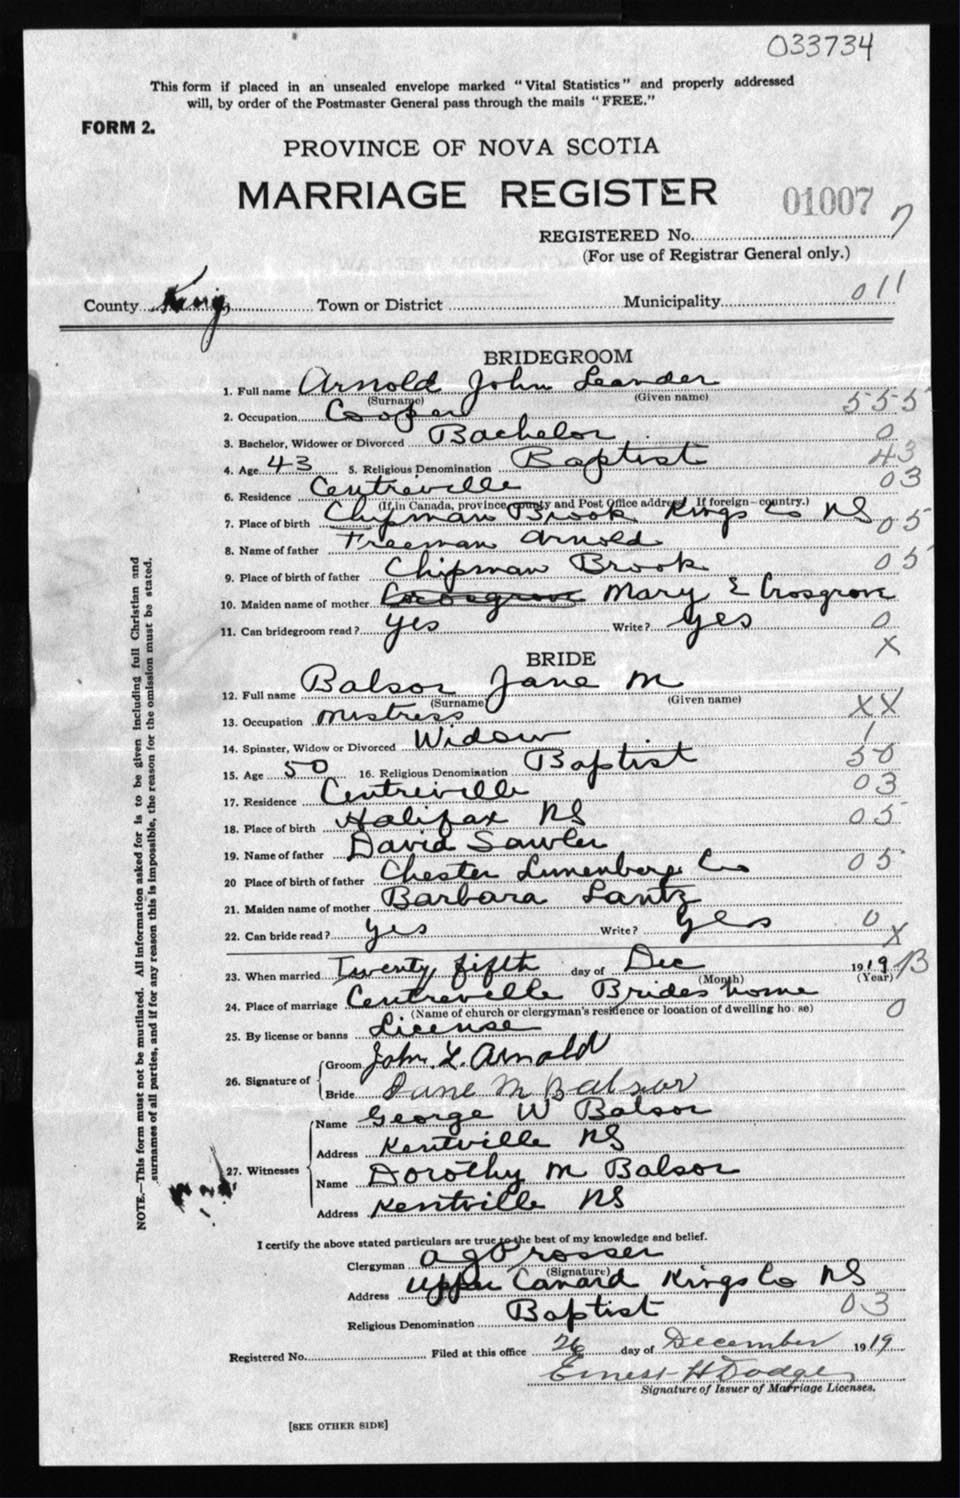 033734
This form if placed in an unsealed envelope marked "Vital Statistics" and properly addressed
will, by order of the Postmaster General pass through the mails "FREE."
FORM 2.
PROVINCE OF NOVA SCOTIA
MARRIAGE REGISTER
01007
REGISTERED No. 7
(For use of Registrar General only.)
County Kings Town or District Municipality 011
BRIDEGROOM
1. Full name Arnold John Leander
(Surname) (Given name)
555
2. Occupation Cooper
3. Bachelor, Widower or Divorced Bachelor 0
4. Age 43 5. Religious Denomination Baptist 43
6. Residence Centreville 03
(If in Canada, province, county and Post Office address. If foreign—country.)
7. Place of birth Chipman Brook Kings Co NS 05
8. Name of father Freeman Arnold
9. Place of birth of father Chipman Brook 05
10. Maiden name of mother Mary E Cosgrove
11. Can bridegroom read? yes Write? yes 0
X
BRIDE
12. Full name Balsor Jane M
(Surname) (Given name)
13. Occupation Mistress XX
14. Spinster, Widow or Divorced Widow 1
15. Age 50 16. Religious Denomination Baptist 50
17. Residence Centreville 03
18. Place of birth Halifax NS 05
19. Name of father David Sawler
20 Place of birth of father Chester Lunenburg Co 05
21. Maiden name of mother Barbara Lantz
22. Can bride read? yes Write? yes 0
X
23. When married Twenty fifth day of Dec 1919 13
(Month) (Year)
24. Place of marriage Centreville Brides home
(Name of church or clergyman's residence or location of dwelling house) 0
25. By license or banns License
26. Signature of Groom John L. Arnold
Bride Jane M Balsor
27. Witnesses
Name George W Balsor
Address Kentville NS
Name Dorothy M Balsor
Address Kentville NS
I certify the above stated particulars are true to the best of my knowledge and belief.
Clergyman A J Prosser
(Signature)
Address Upper Canard Kings Co NS
Religious Denomination Baptist 03
Registered No. Filed at this office 26 day of December 1919
Ernest H Dodge
Signature of Issuer of Marriage Licenses.
[SEE OTHER SIDE]
NOTE.—This form must not be mutilated. All information asked for is to be given including full Christian and
surnames of all parties, and if for any reason this is impossible, the reason for the omission must be stated.